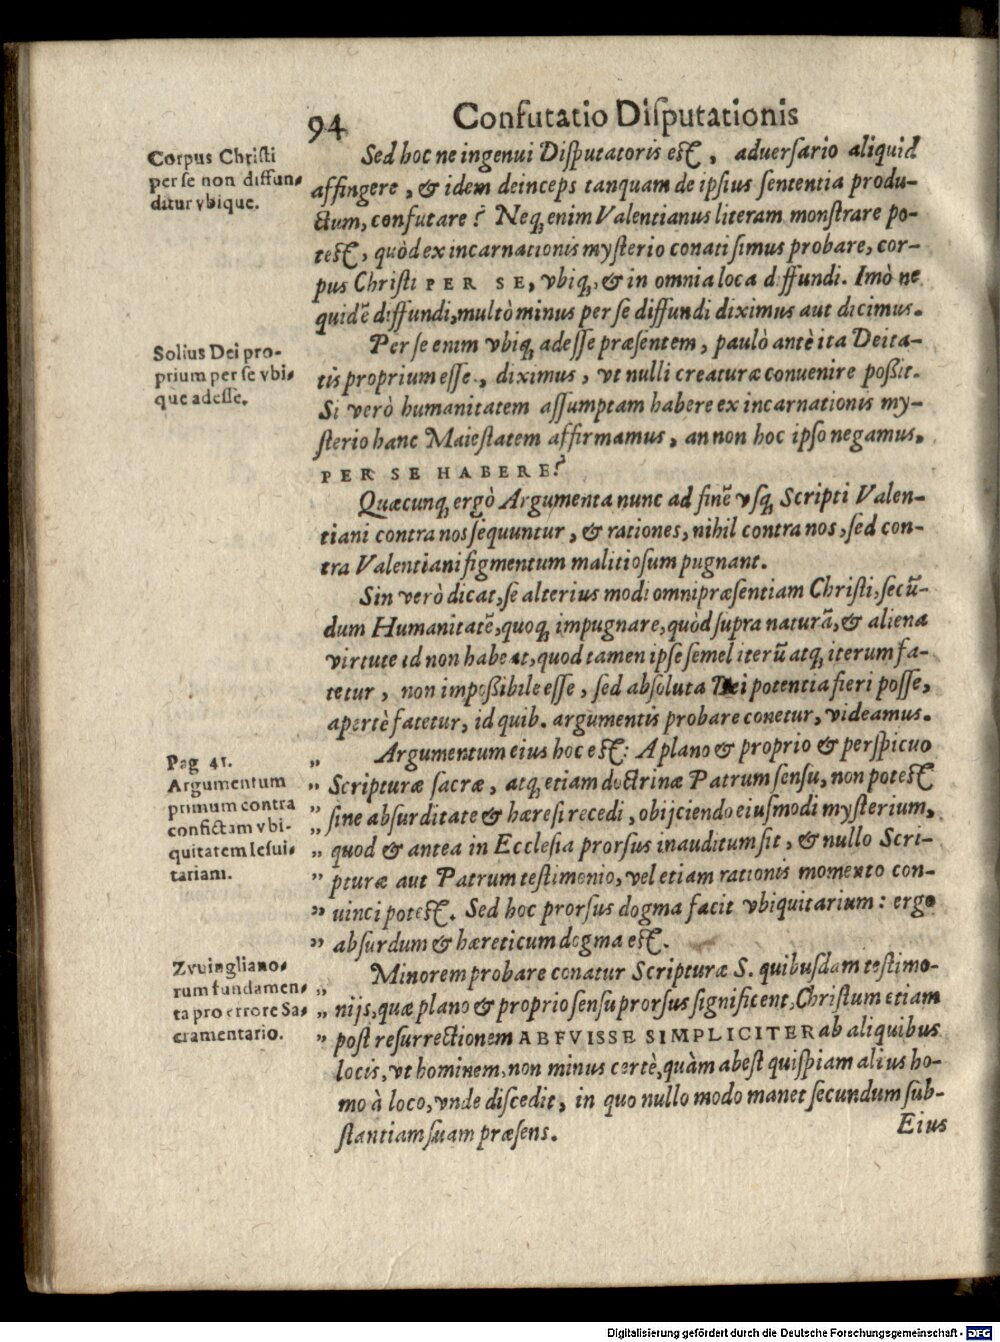 94 Confutatio Diſputationis
Corpus Chriſti
per ſe non diffun-
ditur vbique.
Sed hoc ne ingenui Diſputatoris eſt, aduerſario aliquid
affingere, & idem deinceps tanquam de ipſius ſententia produ-
ctum, confutare? Neq; enim Valentianus literam monſtrare po-
teſt, quòd ex incarnationis myſterio conati ſimus probare, cor-
pus Chriſti PER SE, vbiq;, & in omnia loca diffundi. Imò ne
quidē diffundi, multò minus per ſe diffundi diximus aut dicimus.
Solius Dei pro-
prium per ſe vbi-
que adeſſe.
Per ſe enim vbiq; adeſſe præſentem, paulò antè ita Deita-
tis proprium eſſe, diximus, vt nulli creaturæ conuenire poßit.
Si verò humanitatem aſſumptam habere ex incarnationis my-
ſterio hanc Maieſtatem affirmamus, an non hoc ipſo negamus,
PER SE HABERE?
Quæcunq; ergò Argumenta nunc ad finē vſq; Scripti Valen-
tiani contra nos ſequuntur, & rationes, nihil contra nos, ſed con-
tra Valentiani figmentum malitioſum pugnant.
Sin verò dicat, ſe alterius modi omnipræſentiam Chriſti, ſecū-
dum Humanitatē, quoq; impugnare, quòd ſupra naturā, & aliena
virtute id non habeat, quod tamen ipſe ſemel iterū atq; iterum fa-
tetur, non impoßibile eſſe, ſed abſoluta Dei potentia fieri poſſe,
apertè fatetur, id quib. argumentis probare conetur, videamus.
Pag 41.
Argumentum
primum contra
confictam vbi-
quitatem Ieſui-
tariam.
„ Argumentum eius hoc eſt: A plano & proprio & perſpicuo
„ Scripturæ ſacræ, atq; etiam doctrinæ Patrum ſenſu, non poteſt
„ ſine abſurditate & hæreſi recedi, obijciendo eiuſmodi myſterium,
„ quod & antea in Eccleſia prorſus inauditum ſit, & nullo Scri-
„ pturæ aut Patrum teſtimonio, vel etiam rationis momento con-
„ uinci poteſt. Sed hoc prorſus dogma facit vbiquitarium: ergo
„ abſurdum & hæreticum dogma eſt.
Zvuingliano-
rum fundamen-
ta pro errore Sa-
cramentario.
Minorem probare conatur Scripturæ S. quibuſdam teſtimo-
„ nijs, quæ plano & proprio ſenſu prorſus ſignificent, Chriſtum etiam
„ poſt reſurrectionem ABFVISSE SIMPLICITER ab aliquibus
locis, vt hominem, non minus certè, quàm abeſt quiſpiam alius ho-
mo à loco, vnde diſcedit, in quo nullo modo manet ſecundum ſub-
ſtantiam ſuam præſens.
Eius
Digitalisierung gefördert durch die Deutsche Forschungsgemeinschaft - DFG